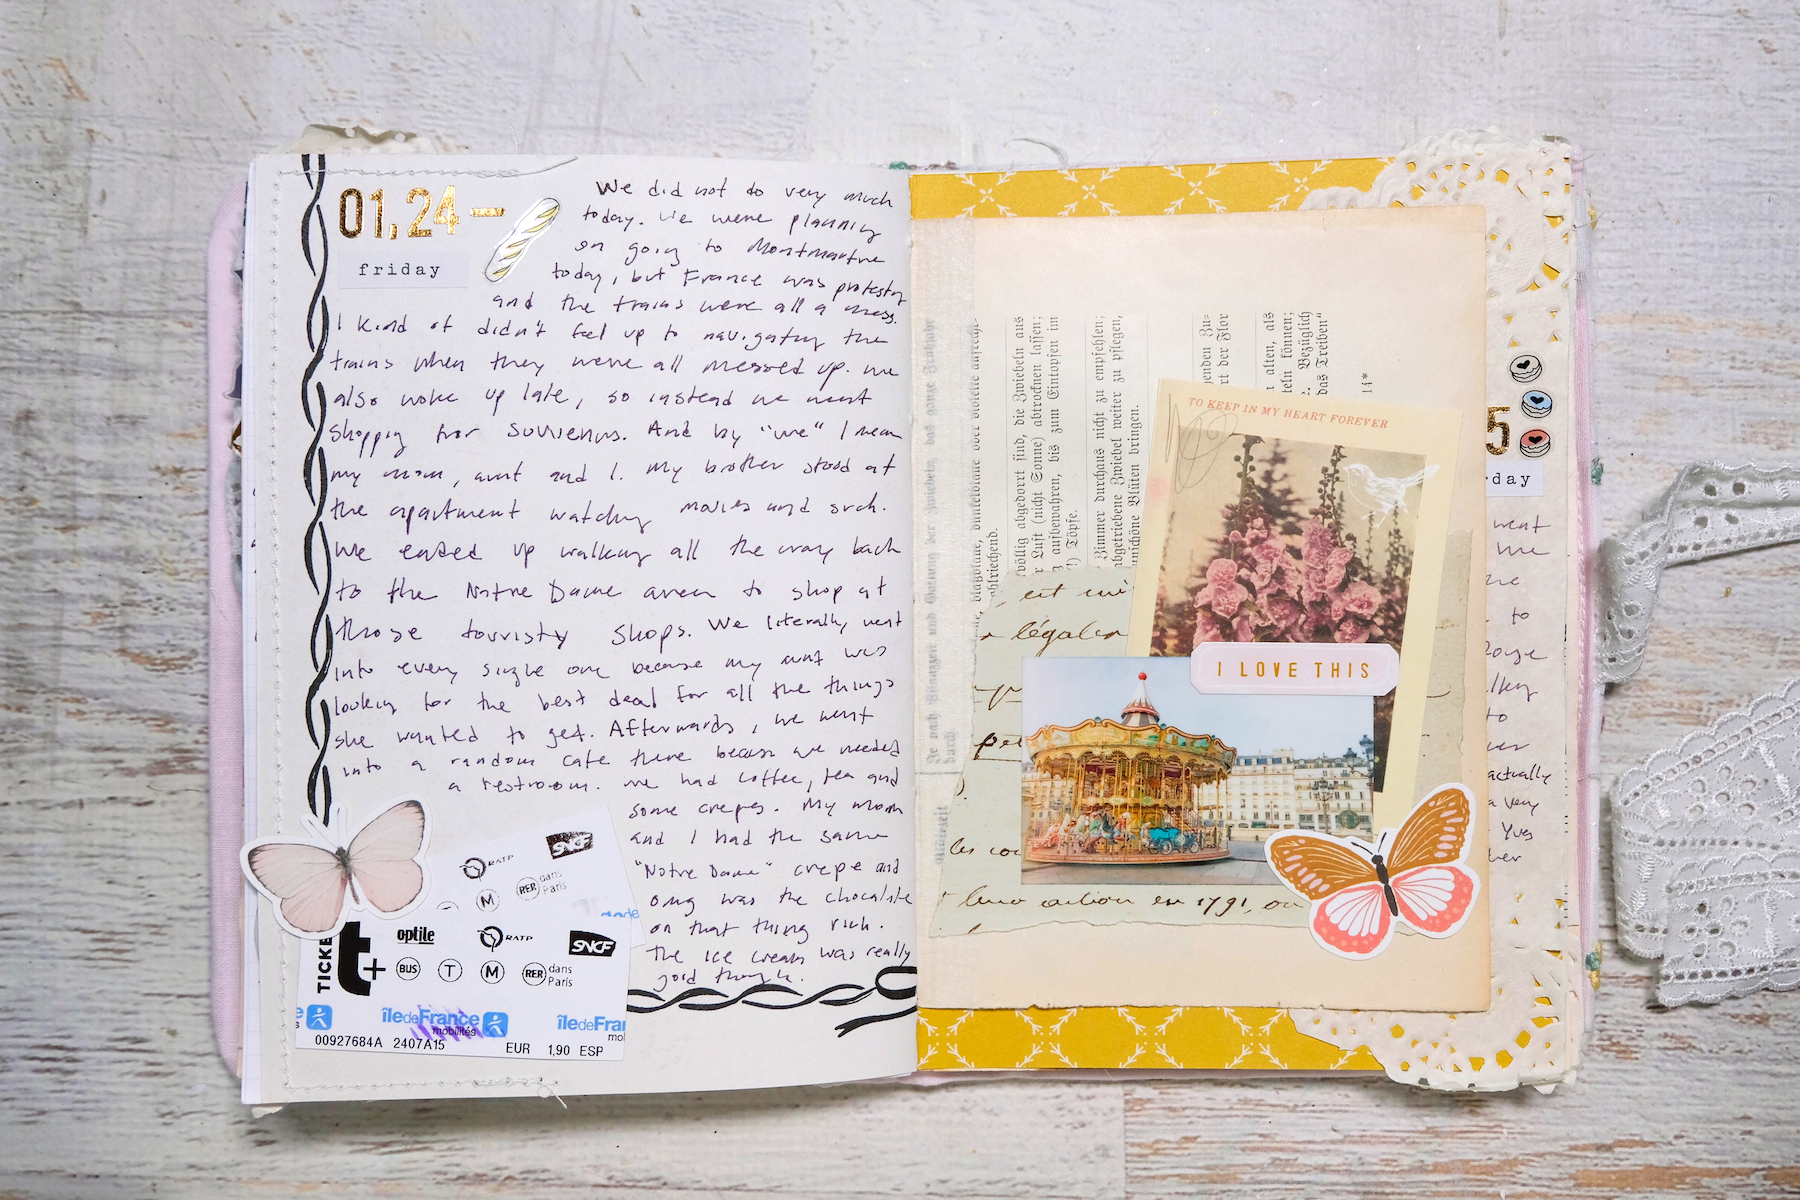 01,24 —
friday
We did not do very much
today. We were planning
on going to Montmartre
today, but France was protesting
and the trains were all a mess.
I kind of didn't feel up to navigating the
trains when they were all messed up. We
also woke up late, so instead we went
shopping for souvenirs. And by "we" I mean
my mom, aunt and I. My brother stood at
the apartment watching movies and such.
We ended up walking all the way back
to the Notre Dame area to shop at
those touristy shops. We literally went
into every single one because my aunt was
looking for the best deal for all the things
she wanted to get. Afterwards, we went
into a random cafe there because we needed
a restroom. We had coffee, tea and
some crepes. My mom
and I had the same
"Notre Dame" crepe and
omg was the chocolate
on that thing rich.
The ice cream was really
good though.
RATP
SNCF
M
RER dans
Paris
TICKE
t+
optile
RATP
SNCF
BUS
T
M
RER dans
Paris
île de France
mobilités
île de Fran
mo
00927684A 2407A15
EUR 1,90 ESP
völlig abgedorrt sind, die Zwiebeln aus
r Luft (nicht Sonne) abtrocknen lassen;
aufbewahren, bis zum Eintopfen im
Töpfe.
Zimmer durchaus nicht zu empfehlen;
abgetriebene Zwiebel weiter zu pflegen,
Blüten bringen.
genden Zu-
rt der Flor
alten, als
teln können;
Bezüglich
das Treiben"
14*
Je nach
durch
TO KEEP IN MY HEART FOREVER
I LOVE THIS
, est
légales
pe
les co
action en 1791, ou
5
day
went
me
to
to
actually
a very
Yves